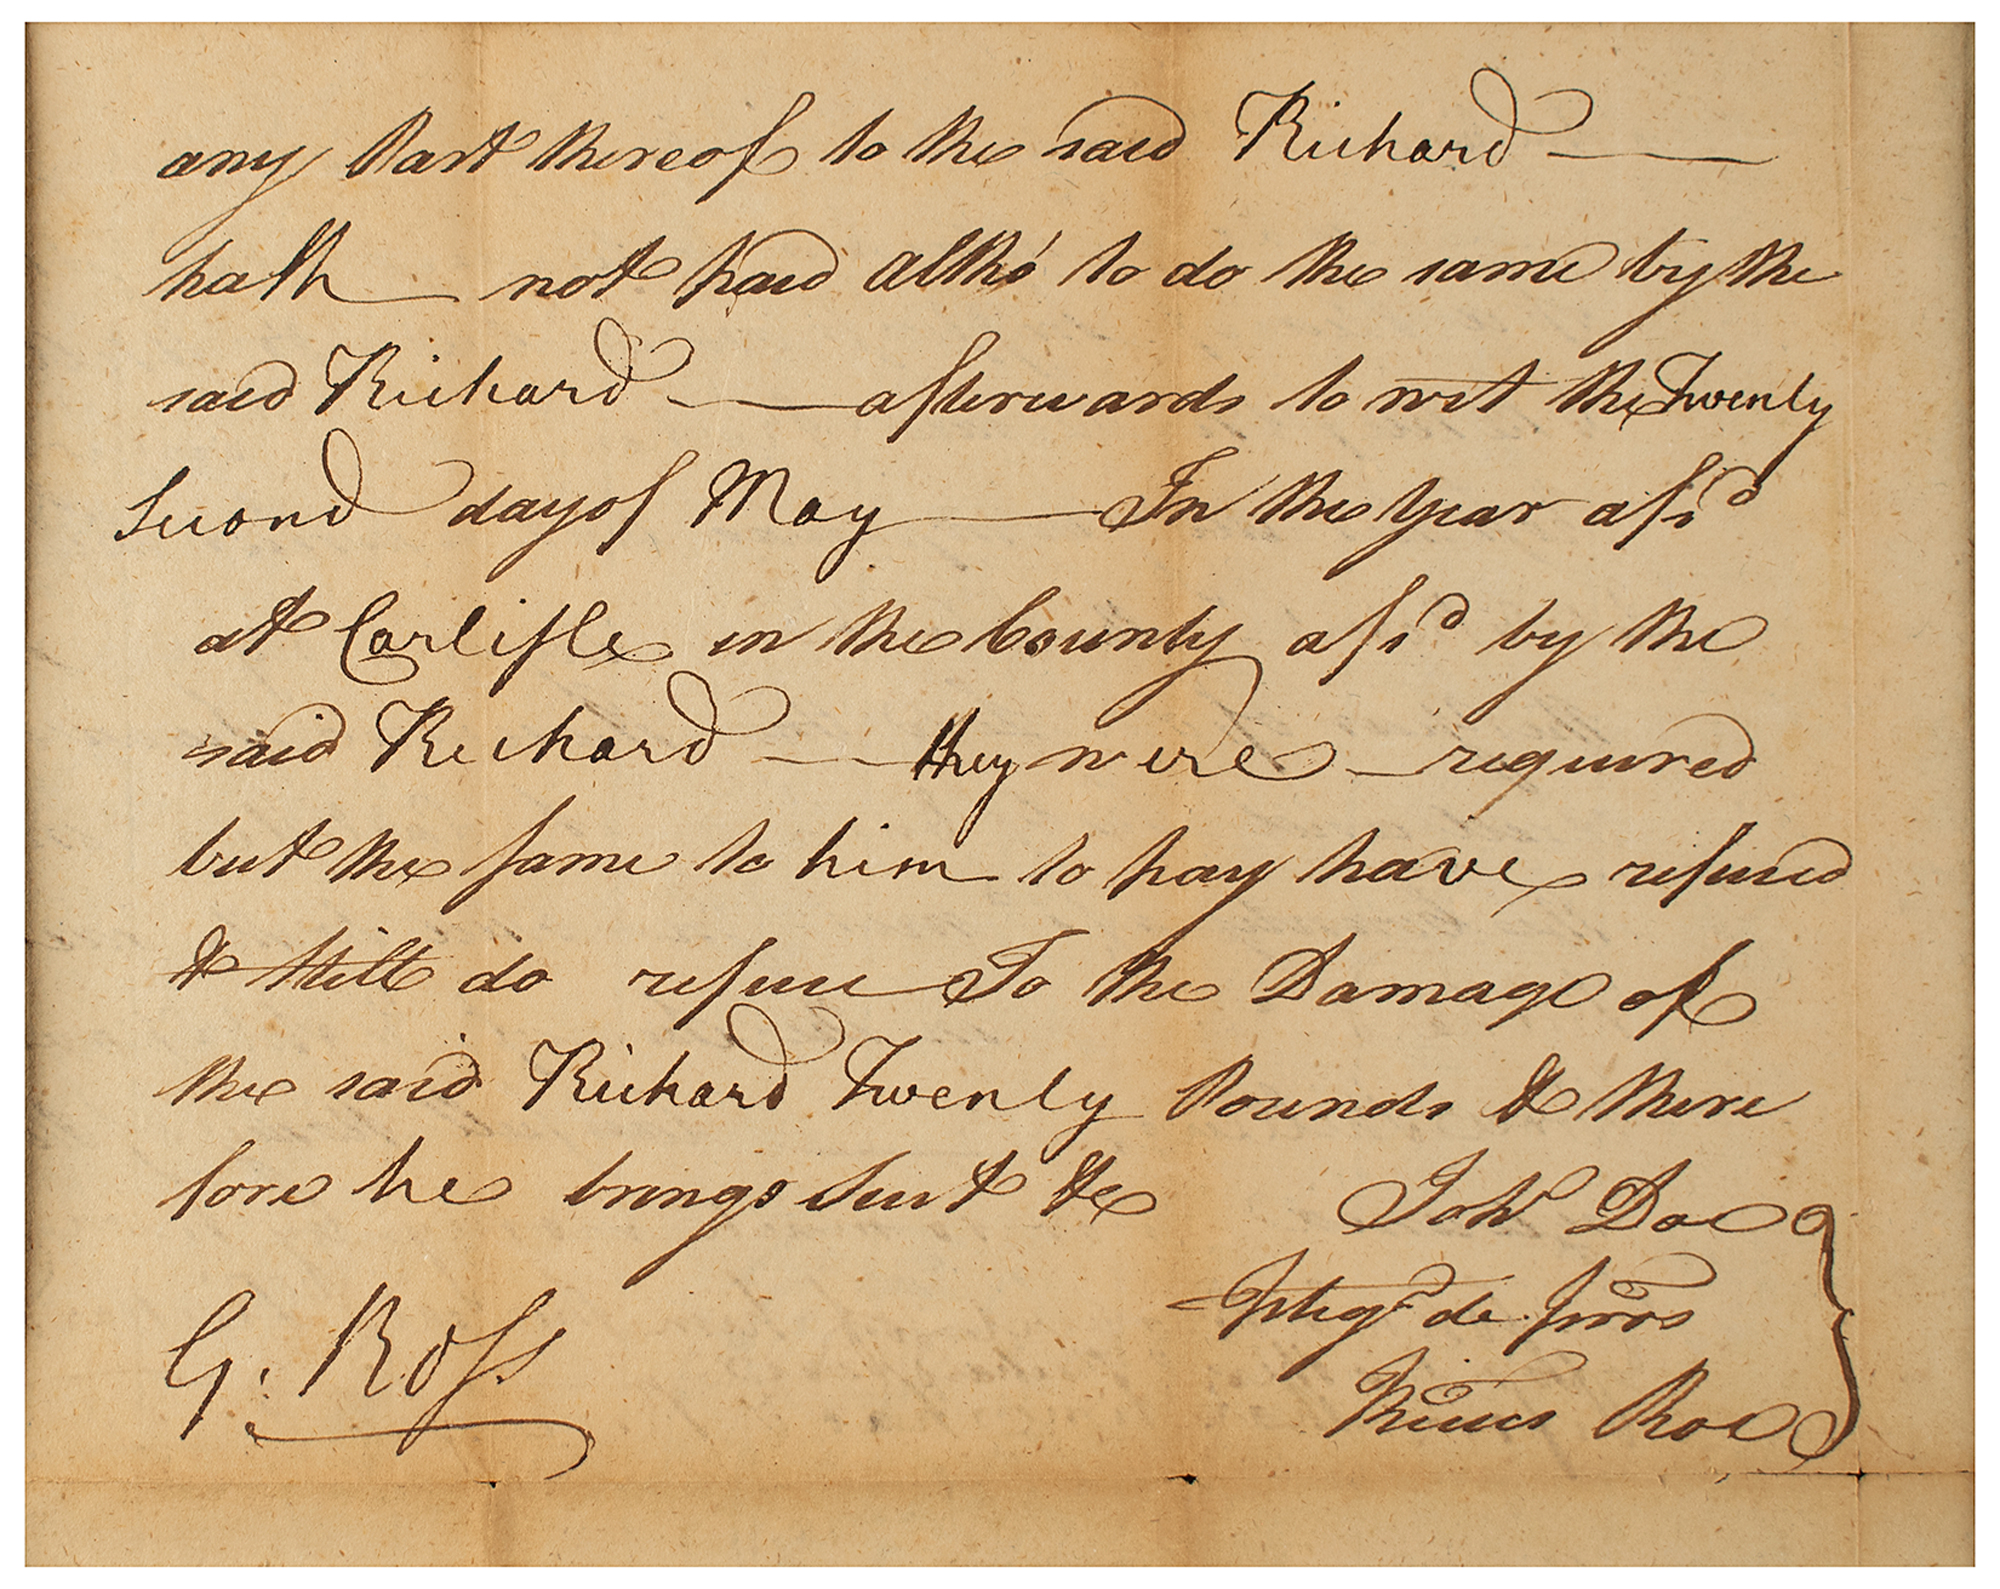 any Part thereof to the said Richard
hath not paid altho' to do the same by the
said Richard afterwards to wit the Twenty
Second day of May In the Year afsd
at Carlisle in the County afsd by the
said Richard they were required
but the same to him to pay have refused
& still do refuse To the Damage of
the said Richard Twenty Pounds & there
fore he brings Suit &c
Jno Doe
Pleg. de pros
Richd Roe
G. Ross